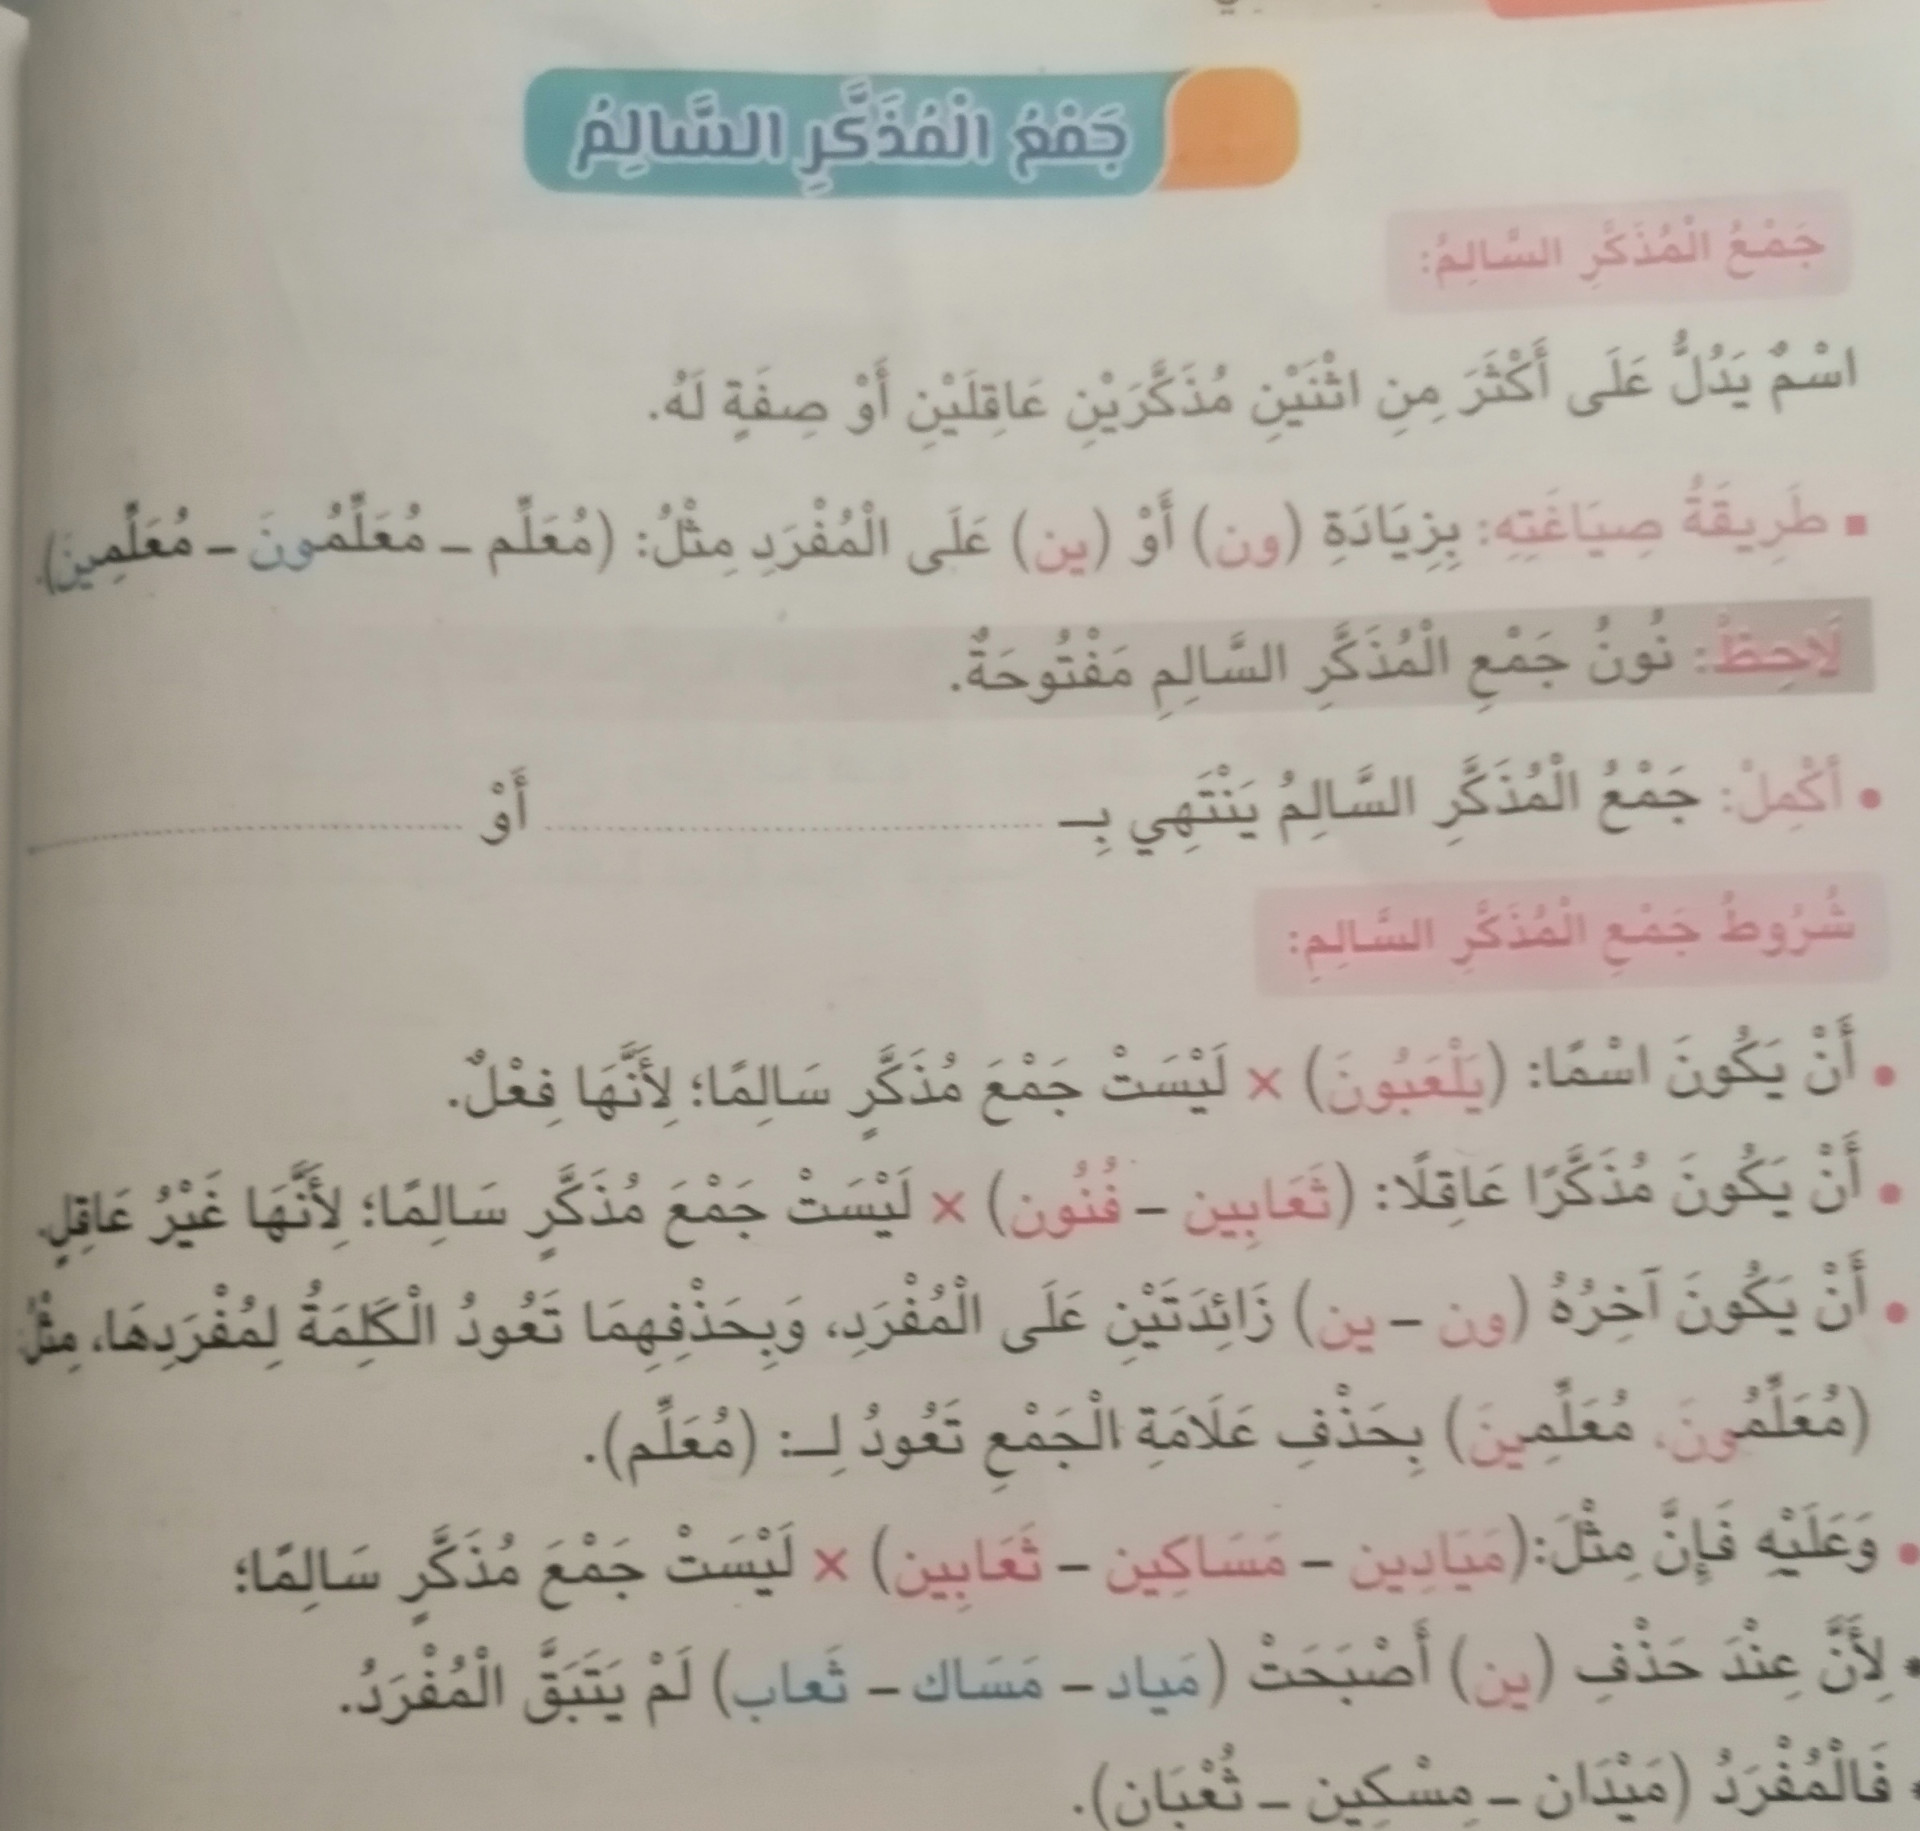 جَمْعُ الْمُذَكَّرِ السَّالِمُ
جَمْعُ الْمُذَكَّرِ السَّالِمُ:
اسْمٌ يَدُلُّ عَلَى أَكْثَرَ مِنِ اثْنَيْنِ مُذَكَّرَيْنِ عَاقِلَيْنِ أَوْ صِفَةٍ لَهُ.
▪ طَرِيقَةُ صِيَاغَتِهِ: بِزِيَادَةِ (ون) أَوْ (ين) عَلَى الْمُفْرَدِ مِثْلُ: (مُعَلِّم – مُعَلِّمُونَ – مُعَلِّمِينَ).
لَاحِظْ: نُونُ جَمْعِ الْمُذَكَّرِ السَّالِمِ مَفْتُوحَةٌ.
• أَكْمِلْ: جَمْعُ الْمُذَكَّرِ السَّالِمُ يَنْتَهِي بِـ ........................ أَوْ ........................
شُرُوطُ جَمْعِ الْمُذَكَّرِ السَّالِمِ:
• أَنْ يَكُونَ اسْمًا: (يَلْعَبُونَ) × لَيْسَتْ جَمْعَ مُذَكَّرٍ سَالِمًا؛ لِأَنَّهَا فِعْلٌ.
• أَنْ يَكُونَ مُذَكَّرًا عَاقِلًا: (ثَعَابِين – فُنُون) × لَيْسَتْ جَمْعَ مُذَكَّرٍ سَالِمًا؛ لِأَنَّهَا غَيْرُ عَاقِلٍ.
• أَنْ يَكُونَ آخِرُهُ (ون – ين) زَائِدَتَيْنِ عَلَى الْمُفْرَدِ، وَبِحَذْفِهِمَا تَعُودُ الْكَلِمَةُ لِمُفْرَدِهَا، مِثْلُ
(مُعَلِّمُونَ، مُعَلِّمِينَ) بِحَذْفِ عَلَامَةِ الْجَمْعِ تَعُودُ لِـ: (مُعَلِّم).
• وَعَلَيْهِ فَإِنَّ مِثْلَ:(مَيَادِين – مَسَاكِين – ثَعَابِين) × لَيْسَتْ جَمْعَ مُذَكَّرٍ سَالِمًا؛
• لِأَنَّ عِنْدَ حَذْفِ (ين) أَصْبَحَتْ (مَياد – مَسَاك – ثَعاب) لَمْ يَتَبَقَّ الْمُفْرَدُ.
• فَالْمُفْرَدُ (مَيْدَان – مِسْكِين – ثُعْبَان).